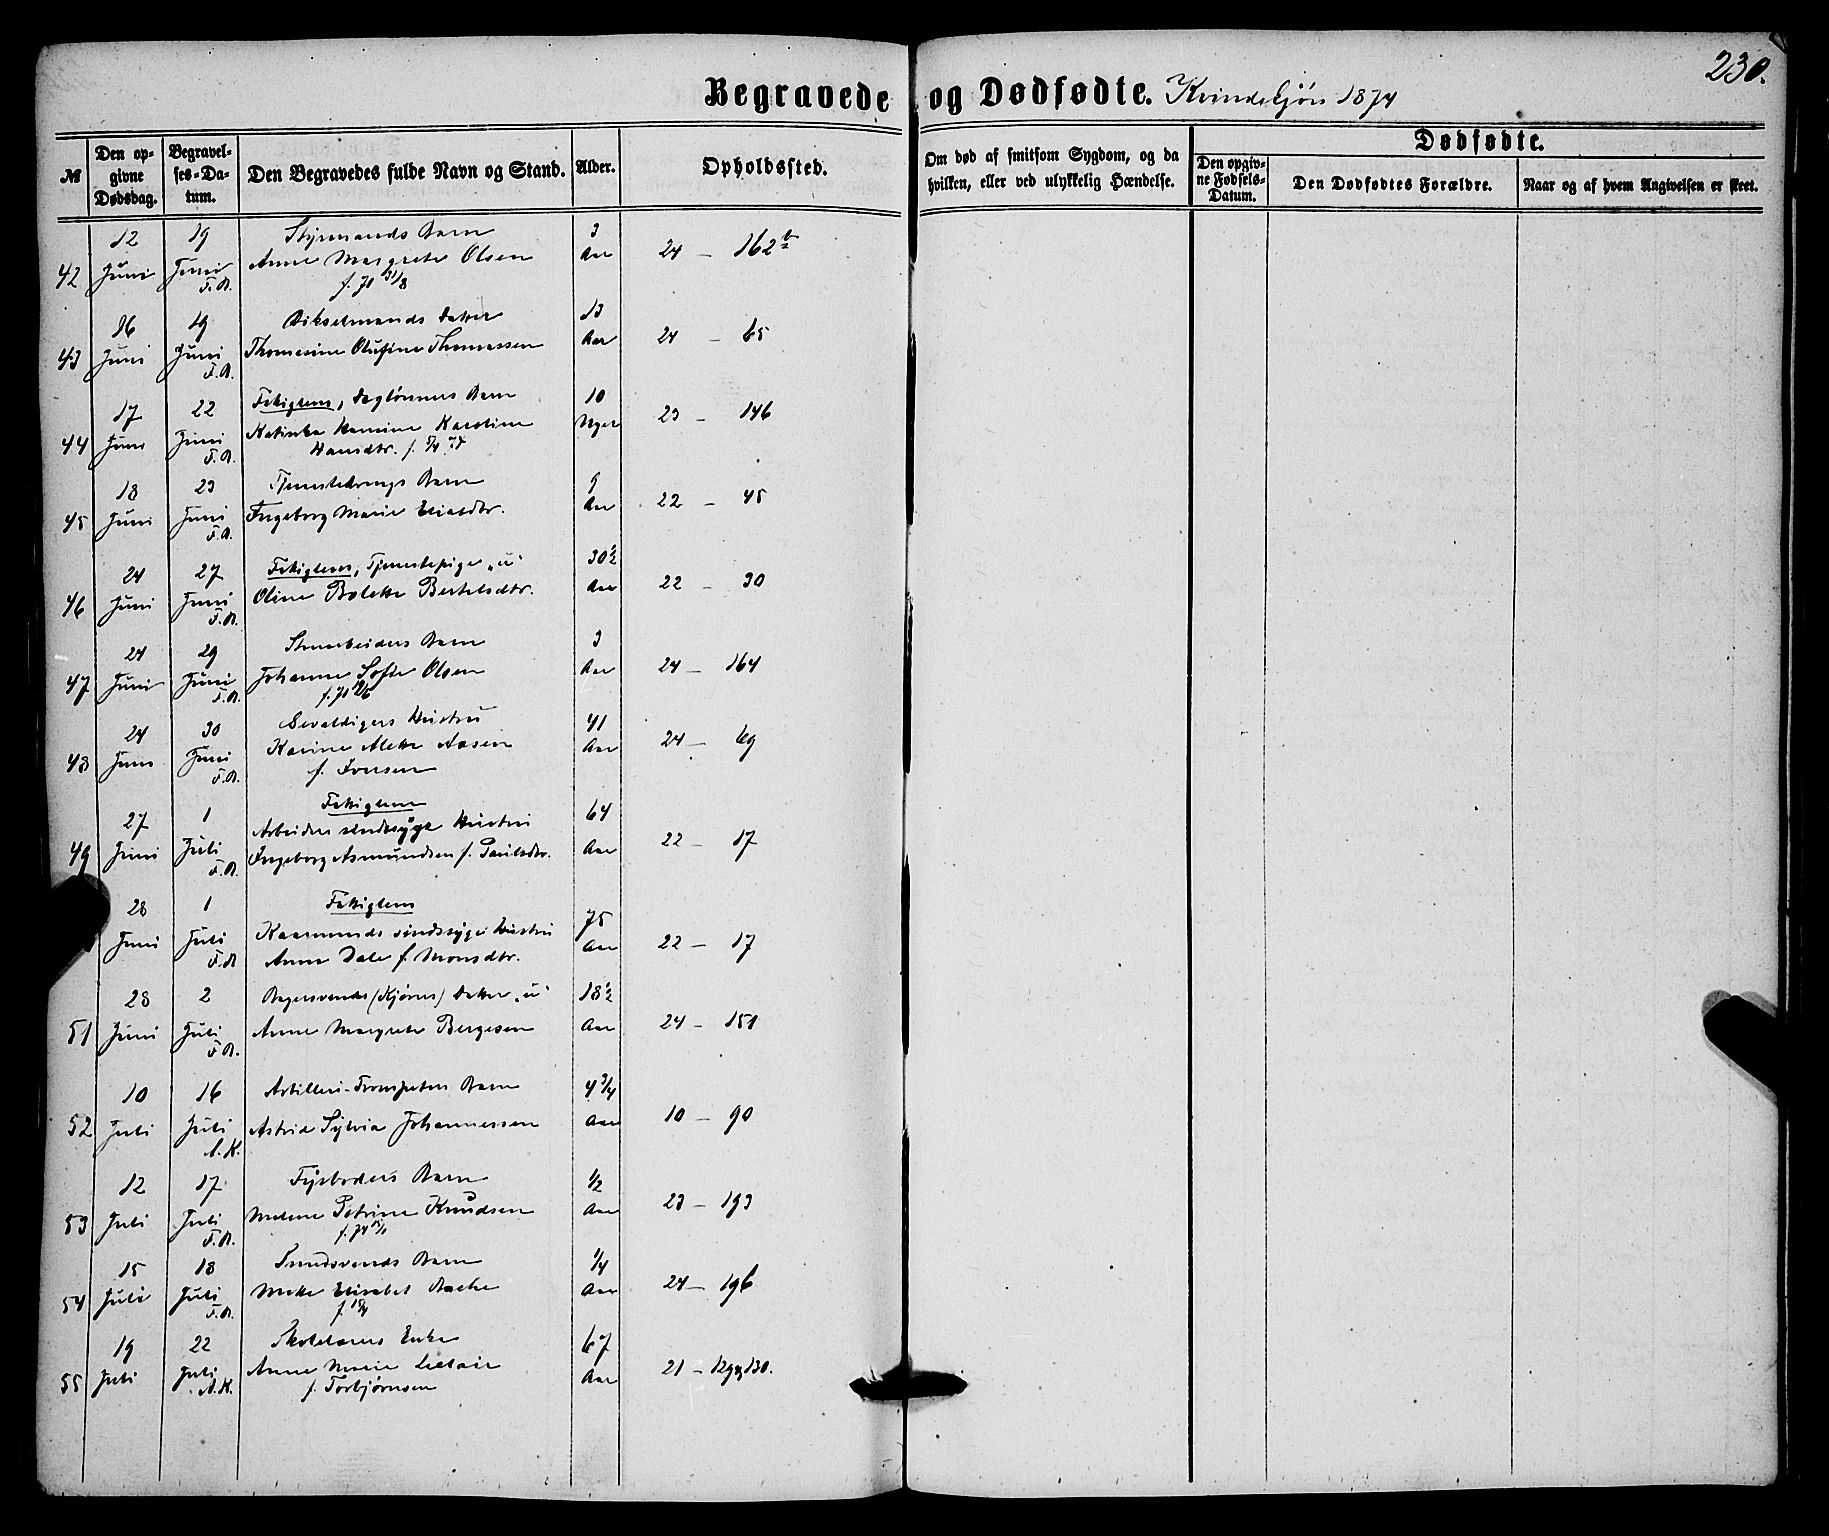 230.
Begravede og Dødfødte. Kvindekjøn 1874
№
Den opgivne Dødsdag.
Begravelses-Datum.
Den Begravedes fulde Navn og Stand.
Alder.
Opholdssted.
Om død af smitsom Sygdom, og da hvilken, eller ved ulykkelig Hændelse.
Dødfødte.
Den opgivne Fødsels-Datum.
Den Dødfødtes Forældre.
Naar og af hvem Angivelsen er skeet.
12 19 Styrmands Barn 3
42 Juni Juni Anne Margrete Olsen Aar 24 – 162 b
F.B. f. 71 31/8
16 19 datter 13
43 Juni Juni Thomasine Olufine Thomassen Aar 24 – 65
F.B.
17 22 Fattiglem, Daglønners Barn 10
44 Juni Juni Katinka Hansine Karoline Uger 23 – 146
F.B. Hansdtr. f.
18 23 Barn 9
45 Juni Juni Ingeborg Marie Eliasdtr. Aar 22 – 45
F.B.
24 27 Fattiglem, Tjenestepige „u" 30½
46 Juni Juni Oline Bolette Bertelsdtr. Aar 22 – 30
F.B.
24 29 Stenarbeiders Barn 3
47 Juni Juni Johanne Sofie Olsen Aar 24 – 164
F.B. f. 71
24 30 Gevaldigers Hustru 41
48 Juni Juni Karine Alette Aasen Aar 24 – 69
F.B. f. Iversen
Fattiglem
27 1 Arbeiders sindssyge Hustru 64
49 Juni Juli Ingeborg Asmundsen f. Paulsdtr. Aar 22 – 17
F.B.
28 1 Fattiglem 75
Juni Juli Kaarmands sindssyge Hustru Aar 22 – 17
F.B. Anne Dale f. Monsdtr.
28 2 Bagersvends (Kjørus) Datter „u" 18½
51 Juni Juli Anne Margrete Bergesen Aar 24 – 151
F.B.
10 16 Artilleri-Trompeters Barn 4 3/4
52 Juli Juli Astrid Sylvia Johannessen Aar 10 – 90
A.K.
12 17 Fyrbøders Barn 1/2
53 Juli Juli Malene Petrine Knudsen Aar 23 – 193
F.B. f. 74
15 18 Smedsvends Barn 1/4
54 Juli Juli Mette Elisabet Aar 24 – 196
F.B.
19 22 Skolelærers Enke 67
55 Juli Juli Anne Marie Aar 21 – 129 130.
A.K. f. Torbjørnsen